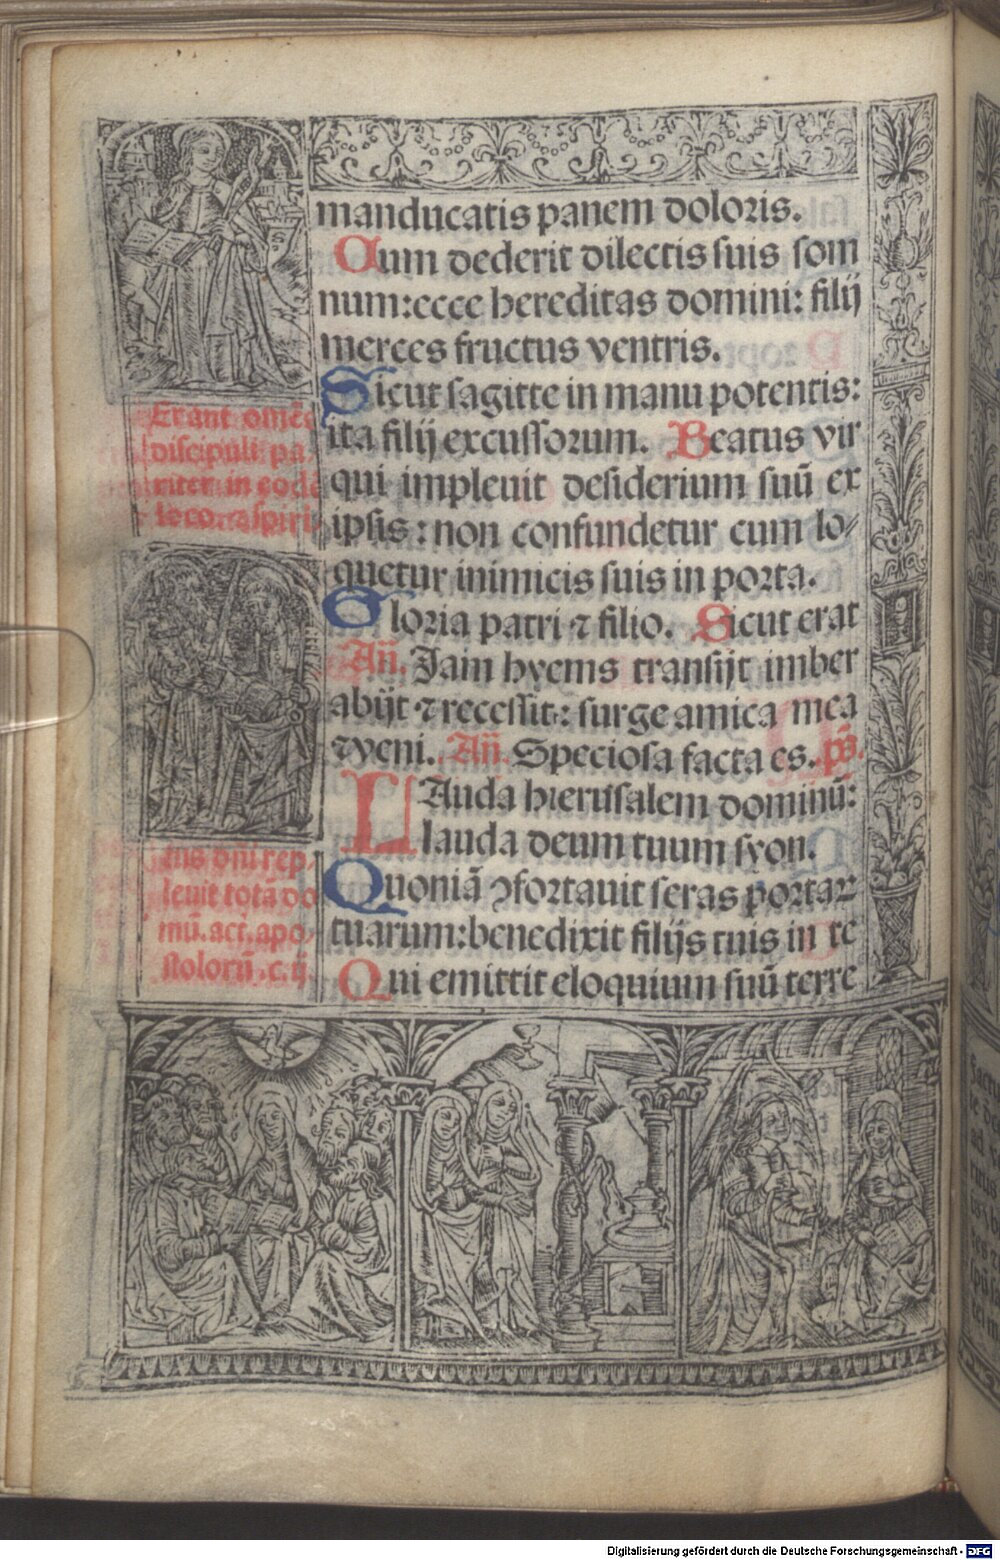 manducatis panem doloris.
Cum dederit dilectis suis som
num: ecce hereditas domini: filij
merces fructus ventris.
Sicut sagitte in manu potentis:
ita filij excussorum. Beatus vir
qui impleuit desiderium suū ex
ipsis: non confundetur cum lo/
quetur inimicis suis in porta.
Gloria patri ⁊ filio. Sicut erat
Añ. Jam hyems transijt imber
abijt ⁊ recessit: surge amica mea
⁊ veni. Añ. Speciosa facta es. ps̄.
LAuda hierusalem dominū:
lauda deum tuum syon.
Quoniā ꝯfortauit seras portaꝝ
tuarum: benedixit filijs tuis in te
Qui emittit eloquium suū terre
Erant omēs
discipuli pa
riter in eodē
loco.⁊ a spiri
tus dn̄i rep
leuit totā do
mū. act. apo
stolorū. c. ij.
Digitalisierung gefördert durch die Deutsche Forschungsgemeinschaft - DFG